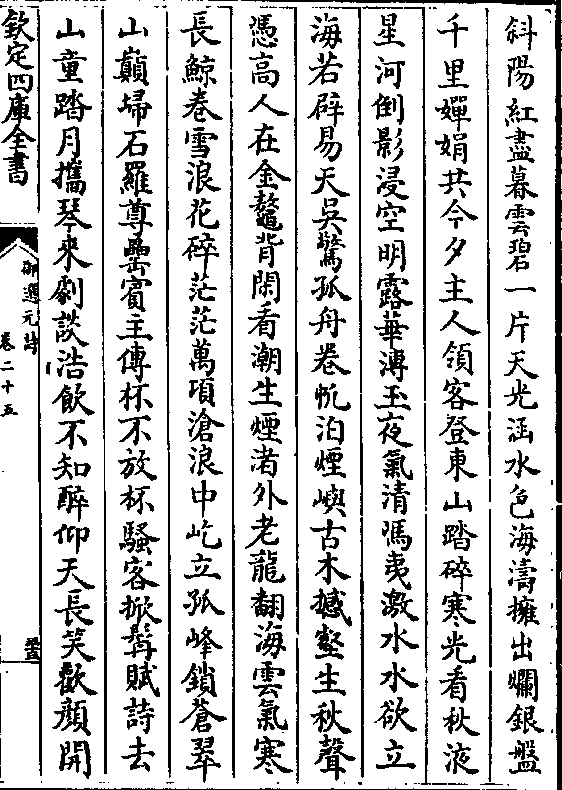 斜陽紅盡暮雲碧一片天光涵水色海濤擁出爛銀盤
千里嬋娟共今夕主人領客登東山踏碎寒光看秋液
星河倒影浸空明露華漙玉夜氣清馮夷激水水欲立
海若辟易天吳驚孤舟卷帆泊煙嶼古木撼壑生秋聲
憑高人在金鼇背閑看潮生煙渚外老龍翻海雲氣寒
長鯨卷雪浪花碎茫茫萬項滄浪中屹立孤峰鎖蒼翠
山巔埽石羅尊罍賓主傳杯不放杯騷客掀髯賦詩去
山童踏月攜琴來劇談浩飲不知醉仰天長笑歡顏開
欽定四庫全書
御選元詩
卷二十五